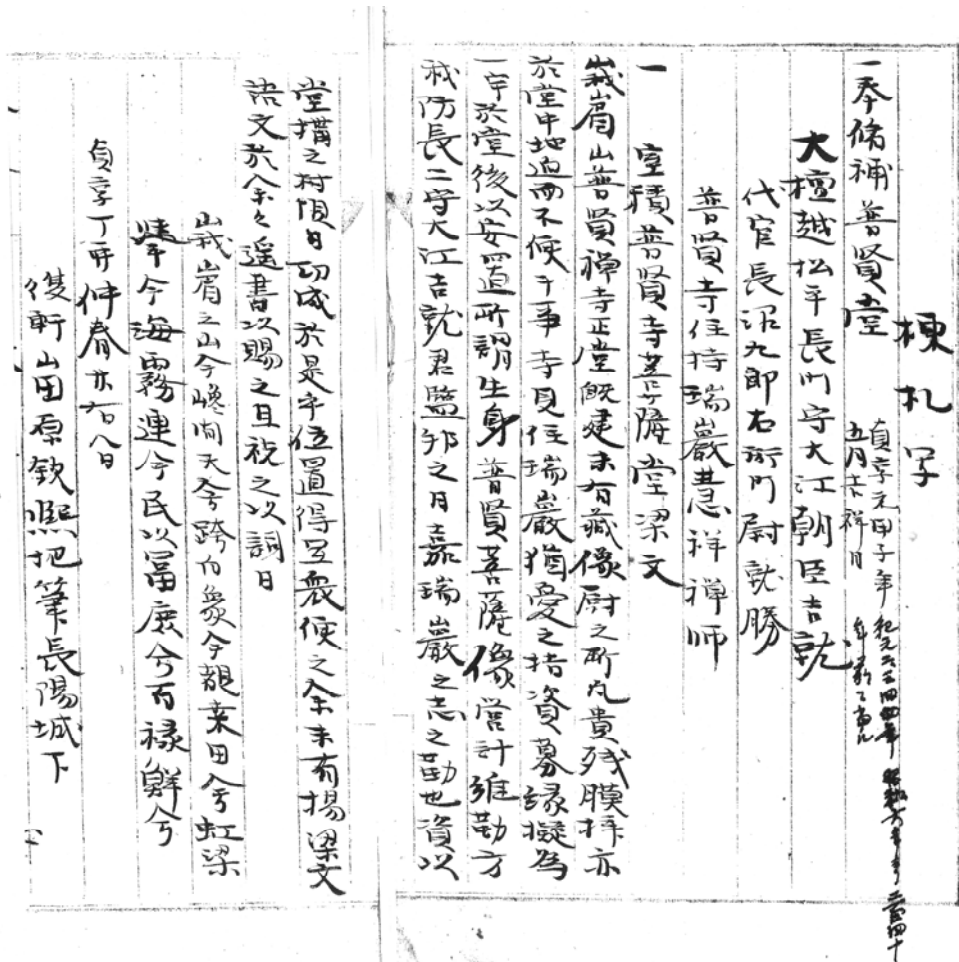 棟札写
貞享元甲子年 紀元二三四四年 昭和
五月吉祥日
一奉脩補普賢堂
大檀越松平長門守大江朝臣吉就
代官長沼九郎右衛門尉就勝
普賢寺住持瑞巖慧祥禅師
一 室積普賢寺菩薩堂梁文
峩眉山普賢禅寺正堂既建未有蔵像厨之所凡貴残膜拝亦
於堂中地迫而不便于事寺見住瑞巌猶憂之捐資募縁擬為
一宇於堂後以安置所謂生身普賢菩薩像営計維勤方
我防長二守大江吉就君監邦之日嘉瑞巌之志之勤也資以
堂搆之材傾日功成於是乎位置得宜衆便之余未有揚梁文
請文於余々遥書以賜之且祝之以詞曰
峩眉之山兮巉問天兮跨白象兮親桑田兮虹梁
肇兮海霧連兮民以富庶兮百禄鮮兮
貞享丁卯仲春廿六日
復軒山田原欽熈把筆長陽城下